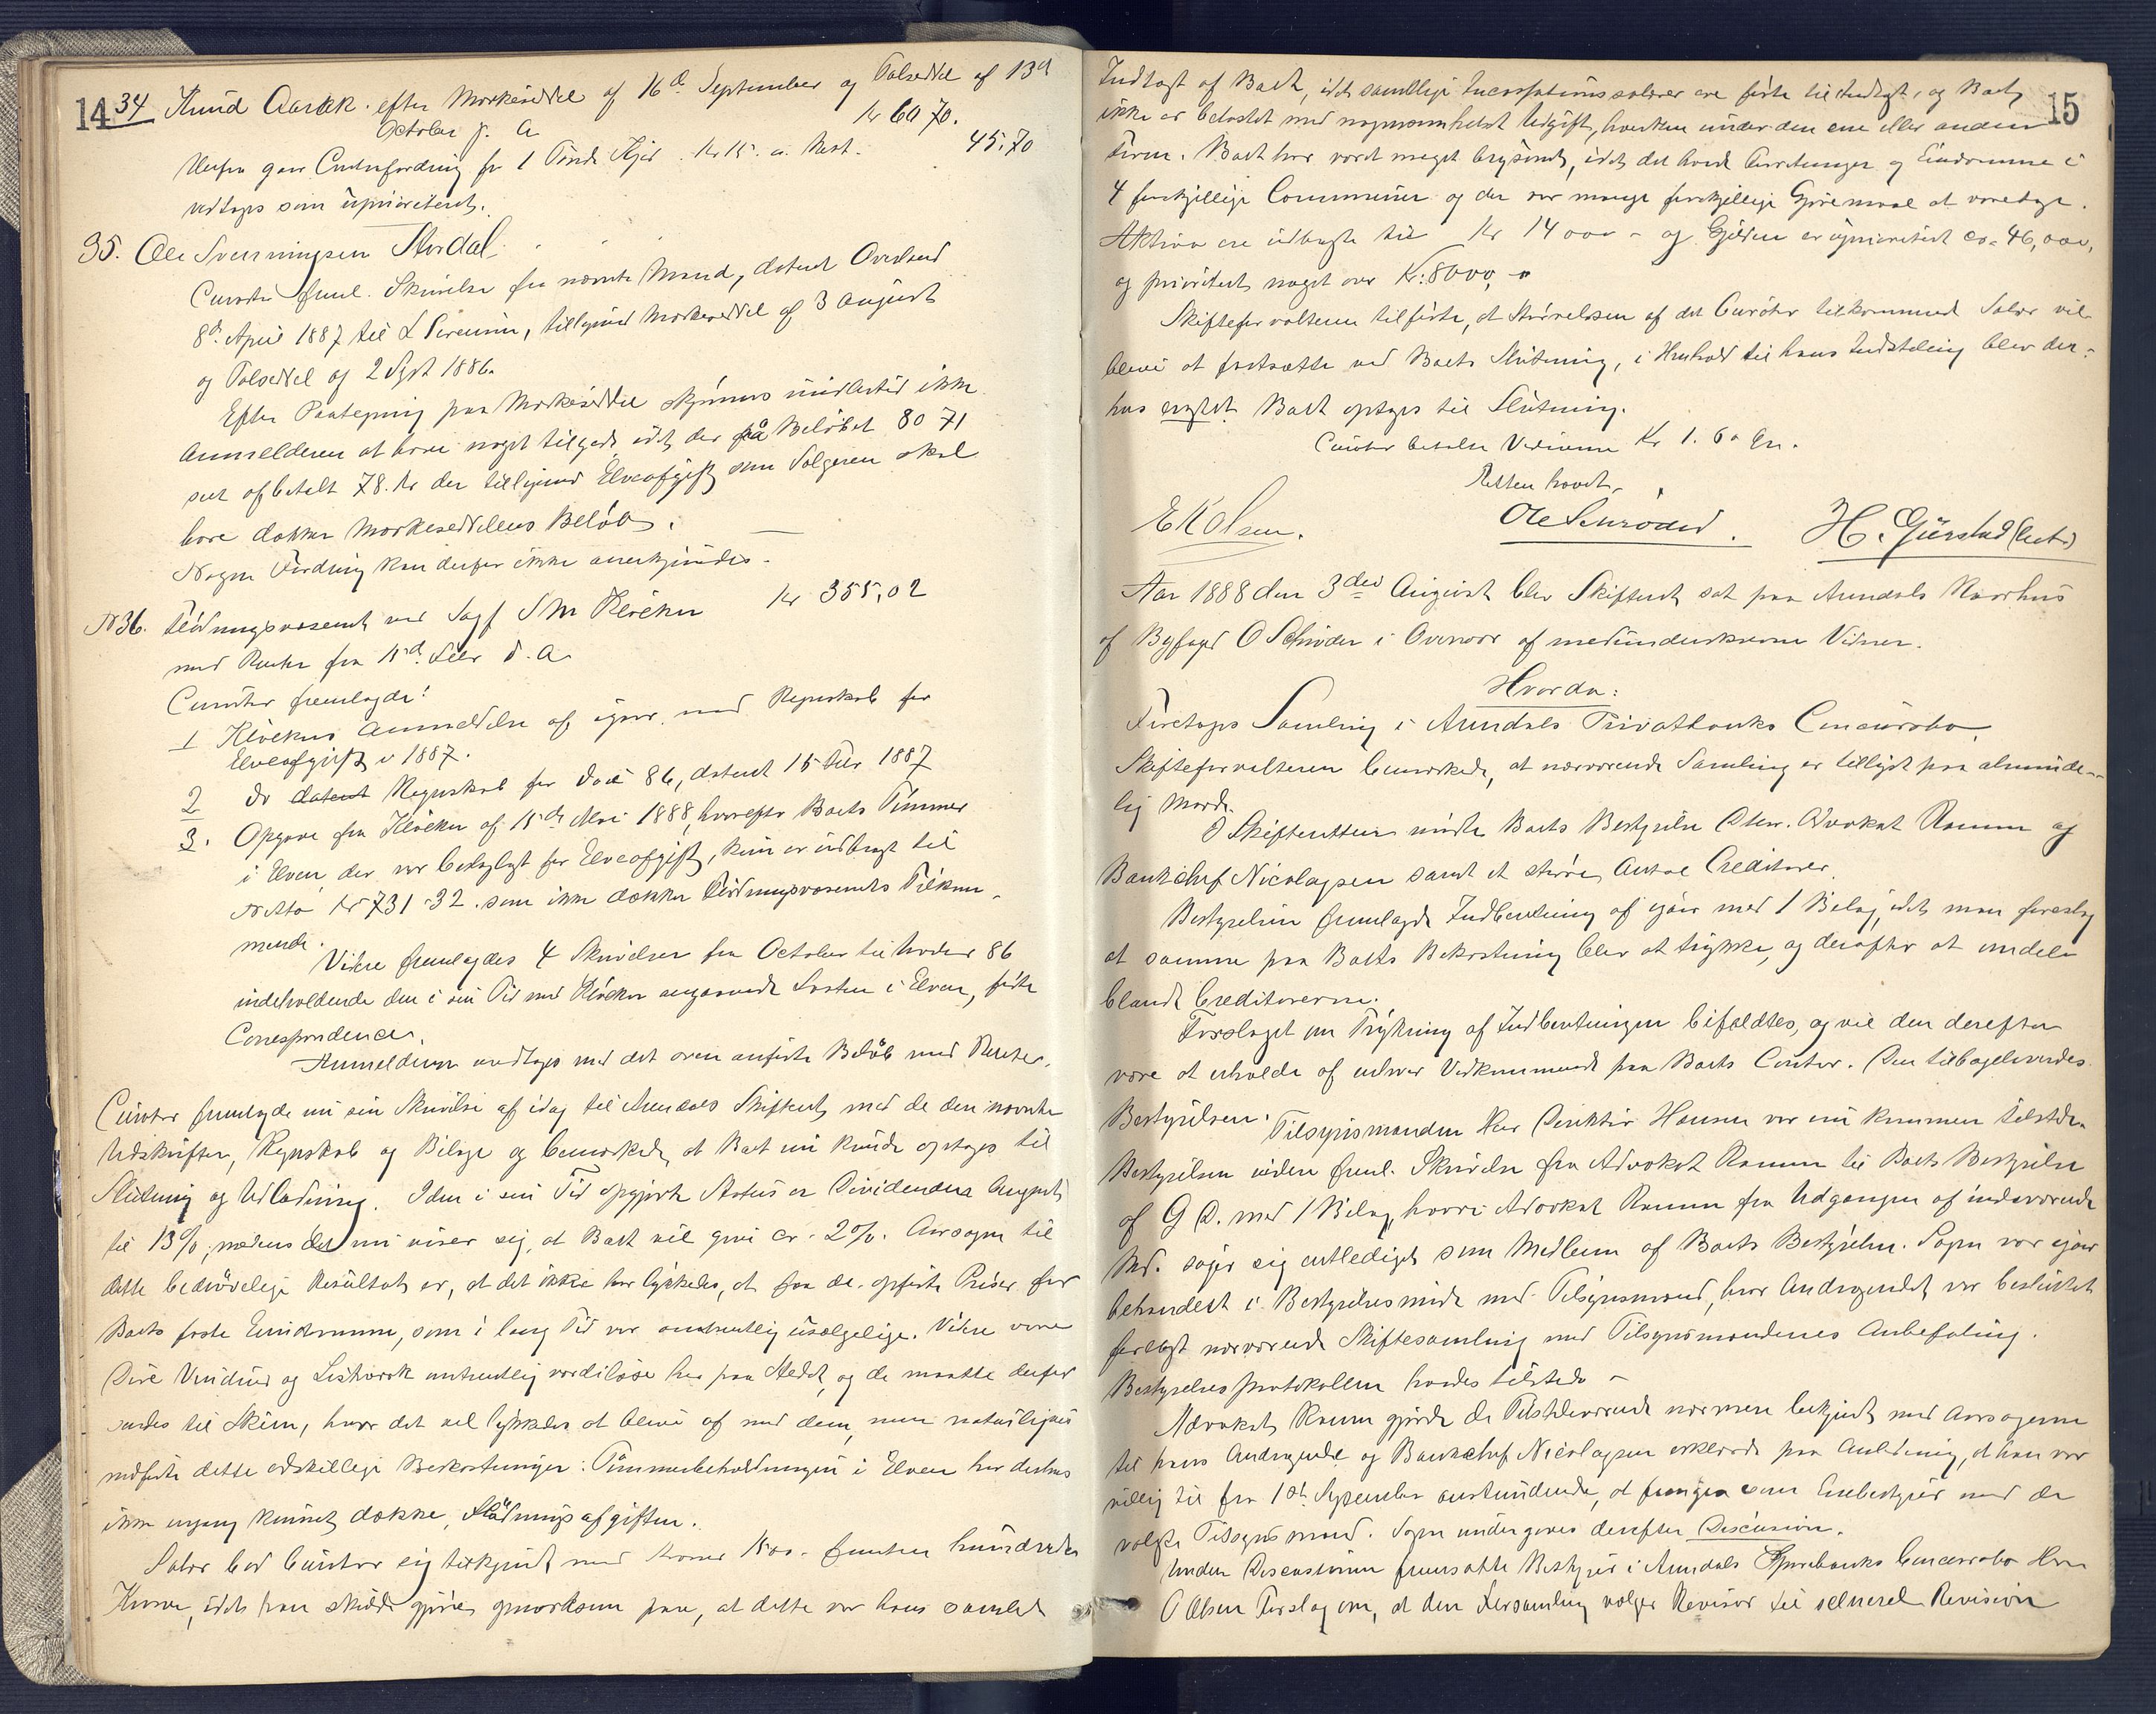 14
34 Knud Aarak. efter Mærkeseddel af 16d September og Tolseddel af 13d
October f. A Kr 60 70.
Herfra gaar Contrafordring for 1 Tønde Kjød. Kr 15. a. Rest. 45,70
vedtages som uprioriteret.
35. Ole Sverningsen Stordal.
Curator freml. Skrivelse fra nævnte Mand, dateret
8d April 1887 til tilligemed Mærkeseddel af 3 August
og Tolseddel af 2 Sept 1886.
Efter Paategning paa Mærkeseddel skjønnes imidlertid ikke
Anmelderen at have noget tilgode, idet der på Beløbet 80 71
sees afbetalt 78. Kr der tilligemed Elveafgift som Sælgeren skal
bære dækker Mærkeseddelens Beløb.
Nogen Fordring kan derfor ikke anerkjendes.
N 36. Flødningsvæsenet ved Sagf S M Kløcker Kr 355,02
med Renter fra 15d d. A.
Curator fremlagde:
1 Kløckers Anmeldelse af igaar med Regnskab for
Elveafgift i 1887.
2 do dateret Regnskab for 86, dateret 15 1887
3. Opgave fra Kløcker af 15de Mai 1888, hvorefter Boets Tømmer
i Elven, der var beheftet for Elveafgift, kun er udbragt til
Netto Kr 731-32. som ikke dækker Flødningsvæsenets Tilkom-
mende.
Videre fremlagdes 4 Skrivelser fra October til 86
indeholdende den i sin Tid med Kløcker angaaende Lasten i Elven, førte
Correspondence.
Anmeldelsen vedtages med det oven anførte Beløb med Renter.
Curator fremlagde nu sin Skrivelse af idag til Arendals Skifteret med de deri nævnte
Udskrifter, Regnskab og Bilage og bemærkede, at Boet nu kunde optages til
Slutning og Udlodning. I den i sin Tid opgjorte Status er Dividenden Angivet
til 13%, medens det nu viser sig, at Boet vil give ca. 2%. Aarsagen til
dette bedrøvelige Resultat er, at det ikke har lykkedes, at faa de opførte Priser for
Boets faste Eiendomme, som i lang Tid var omtrentlig usælgelige. Videre vare
Dine Vinduer og Listværk omtrentlig værdiløse her paa Stedet, og de maatte derfor
sendes til Skien, hvor det vel lykkedes at blive af med dem, men naturligvis
medførte dette adskillige Bekostninger. Tømmerbeholdningen i Elven har desuden
ikke engang kunnet dække Flødningsafgiften.
Salær bad Curator sig tilkjendt med Kroner 1500. femten hundrede
Kroner, idet han skulde gjøre opmærksom paa, at dette var hans samlede
15
Indtægt af Boet, idet samtlige Incassationssalærer ere førte til Indtægt, og Boet
ikke er belastet med nogensomhelst Udgift, hverken under den ene eller anden
Form. Boet har været meget brysomt, idet det havde Forretninger og Eiendomme i
4 forskjellige Communer og der var mange forskjellige Gjøremaal at varetage.
Aktiva ere udbragte til Kr 14 000 - og Gjælden er uprioriteret ca. 46,000,
og prioriteret noget over Kr: 8000,-
Skifteforvalteren tilførte, at Størrelsen af det Curator tilkommende Salær vil
blive at fastsætte ved Boets Slutning, i Henhold til hans Indstilling blev der-
hos Boet optaget til Slutning.
Curator betalte Vidnerne Kr 1. 60 Øre.
Retten hævet.
E K Olsen. Ole Schrøder. H. Gierstad (Curt)
Aar 1888 den 3die August blev Skifteret sat paa Arendals Raadhus
af Byfoged O Schrøder i Overvær af medunderskrevne Vidner.
Hvorda:
Foretoges Samling i Arendals Privatbanks Concursbo.
Skifteforvalteren bemærkede, at nærværende Samling er tillyst paa alminde-
lig Maade.
I Skifteretten mødte Boets Bestyrelse D'Hrr. Advokat Ramm og
Bankchef Nicolaysen samt et større Antal Creditorer.
Bestyrelsen fremlagde Indberetning af igaar med 1 Bilag, idet man foreslog
at samme paa Boets Bekostning blev at trykke, og derefter at omdele
blandt Creditorerne.
Forslaget om Trykning af Indberetningen bifaldtes, og vil den derefter
være at erholde af enhver Vedkommende paa Boets Contor. Den tilbageleveredes
Bestyrelsen. Tilsynsmanden Herr Direktør Hansen var nu kommen tilstede.
Bestyrelsen videre freml. Skrivelse fra Advokat Ramm til Boets Bestyrelse
af G D. med 1 Bilag, hvori Advokat Ramm fra Udgangen af indeværende
Md. søger sig entlediget som Medlem af Boets Bestyrelse. Sagen var igaar
behandlet i Bestyrelsesmøde med Tilsynsmænd, hvor Andragendet var besluttet
forelagt nærværende Skiftesamling med Tilsynsmændenes Anbefaling.
Bestyrelsesprotokollen havdes tilstede -
Advokat Ramm gjorde de Tilstedeværende nærmere bekjendt med Aarsagerne
til hans Andragende og Bankchef Nicolaysen erklærede paa Anledning, at han var
villig til fra 1ste September anstundende, at fungere som Enebestyrer med de
valgte Tilsynsmænd. Sagen undergaves derefter Discussion.
Under Discussionen fremsatte Bestyrer i Arendals Sparebanks Concursbo Herr
O Olsen Forslag om, at den Forsamling vælger Revisor til Revision